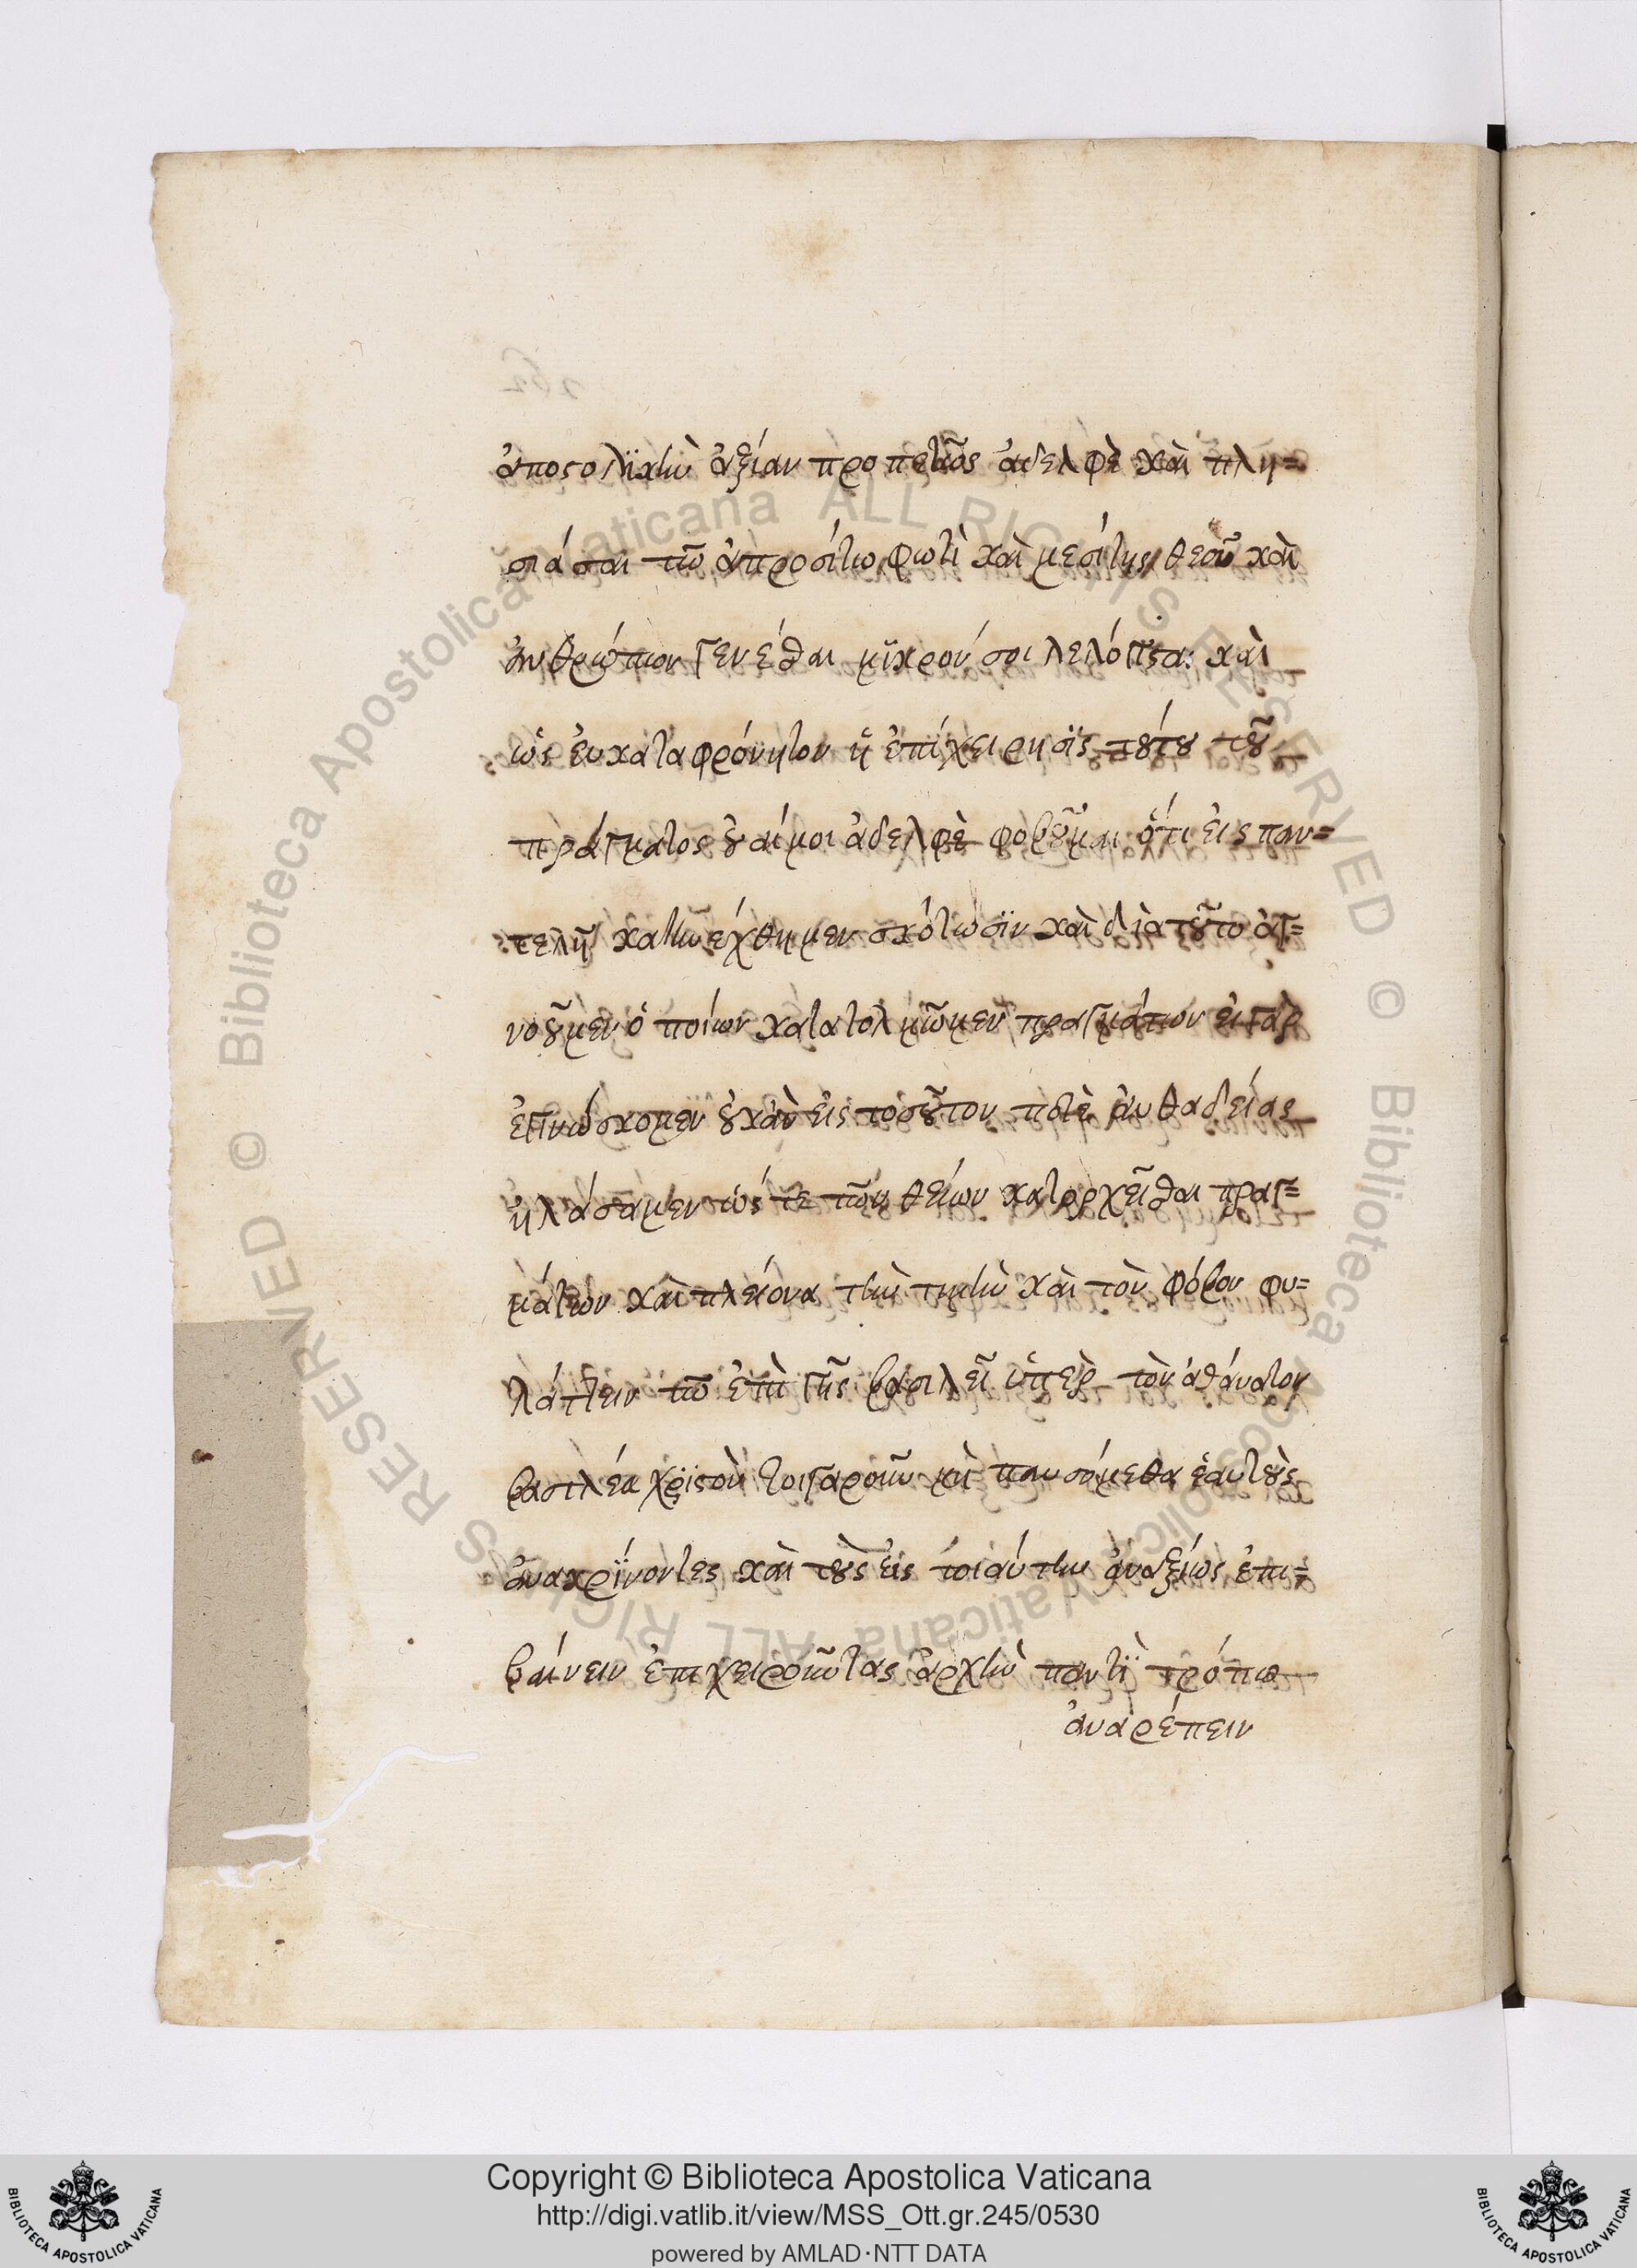 ἀποστολϊκὴν ἀξίαν προπετῶς ἀδελφὲ καὶ πλη=
σιάσαι τῶ ἀπροσίτω φωτὶ καὶ μεσίτης θεοῦ καὶ
ἀνθρώπων γενέσθαι μϊκρόν σοι λελόγισται καὶ
ὡς ἐυκαταφρόνητον ἡ ἐπιχείρησϊς τούτου τοῦ
πράγματος οὐαί μοι ἀδελφὲ φοβοῦμαι ὅτι εἰς παν=
τελῆ κατηνέχθημεν σκότωσϊν καὶ διὰ τοῦτο ἀγ=
νοοῦμεν ὁποίων κατατολμῶμεν πραγμάτων εἰ γὰρ
ἐγινώσκομεν οὐκ ἂν εἰς τοσοῦτον ποτὲ ἀυθαδείας
ἠλάσαμεν ὥς τε τῶν θείων κατορχεῖσθαι πραγ=
μάτων καὶ πλείονα τὴν τιμὴν καὶ τὸν φόβον φυ=
λάττειν τῶ ἐπὶ γῆς βασιλεῖ ὑπὲρ τὸν ἀθάνατον
βασιλέα χρϊστὸν τοιγαροῦν μὴ παυσόμεθα ἑαυτοὺς
ἀνακρίνοντες καὶ τοὺς εἰς τοιαύτην ἀναξίως ἐπι=
βαίνειν ἐπιχειροῦντας ἀρχὴν παντὶ τρόπω
ἀναρέπειν
Copyright © Biblioteca Apostolica Vaticana
http://digi.vatlib.it/view/MSS_Ott.gr.245/0530
powered by AMLAD·NTT DATA